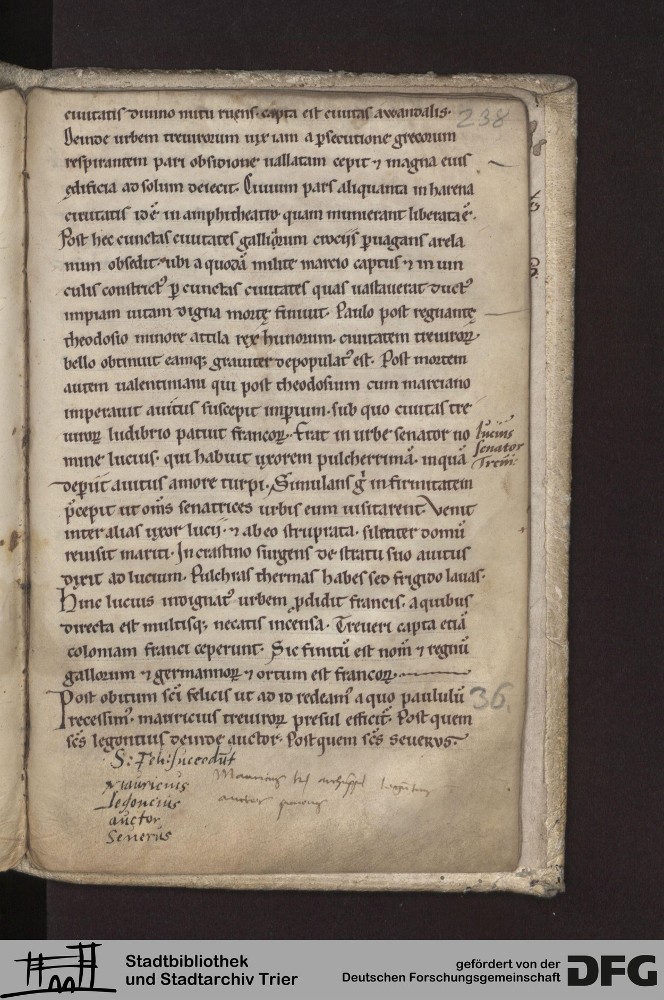 238
ciuitatis diuino nutu ruens. capta est ciuitas a wandalis.
Deinde urbem treuirorum uix iam a ꝑsecutione grecorum
respirantem pari obsidione uallatam cepit ⁊ magna eius
ędificia ad solum deiecit. Ciuium pars aliquanta in harena
ciuitatis id ē in amphitheatro quam munierant liberata ē.
Post hec cunctas ciuitates galliarum crociis ꝑuagans arela
num obsedit. ubi a quodā milite marcio captus ⁊ in uin
culis constrictꝰ ꝑ cunctas ciuitates quas uastauerat ductꝰ
impiam uitam digna mortę finiuit. Paulo post regnantę
theodosio minore attila rex hunorum. ciuitatem treuiroꝝ
bello obtinuit eamqꝫ grauiter depopulatꝰ est. Post mortem
autem ualentiniani qui post theodosium cum marciano
imperauit auitus suscepit imꝑium. sub quo ciuitas tre
uiroꝝ ludibrio patuit francoꝝ. Erat in urbe senator no
mine lucius. qui habuit uxorem pulcherrimā. in quā
deperiit auitus amore turpi. Simulans gͥ infirmitatem
p̄cepit ut om̄s senatrices urbis eum uisitarent. Venit
inter alias uxor lucii. ⁊ ab eo struprata. silenter domū
reuisit mariti. In crastino surgens de stratu suo auitus
dixit ad lucium. Pulchras thermas habes sed frigido lauas.
Hinc lucius indignatꝰ urbem ꝓdidit francis. a quibus
directa est multisqꝫ necatis incensa. Treueri capta etiā
coloniam franci ceperunt. Sic finitū est nom̄ ⁊ regnū
gallorum ⁊ germannoꝝ ⁊ ortum est francoꝝ.
Post obitum sc̄i felicis ut ad id redeamꝰ a quo paululū
recessimꝰ. mauricius treuiroꝝ presul efficit᷑. Post quem
sc̄s legontius deinde auctor. Post quem sc̄s seuerus.
36.
Lucius
senator
Treui:
S: Feli: succedūt
Mauricius
Legoncius
auctor
Seuerus
Stadtbibliothek
und Stadtarchiv Trier
gefördert von der
Deutschen Forschungsgemeinschaft
DFG